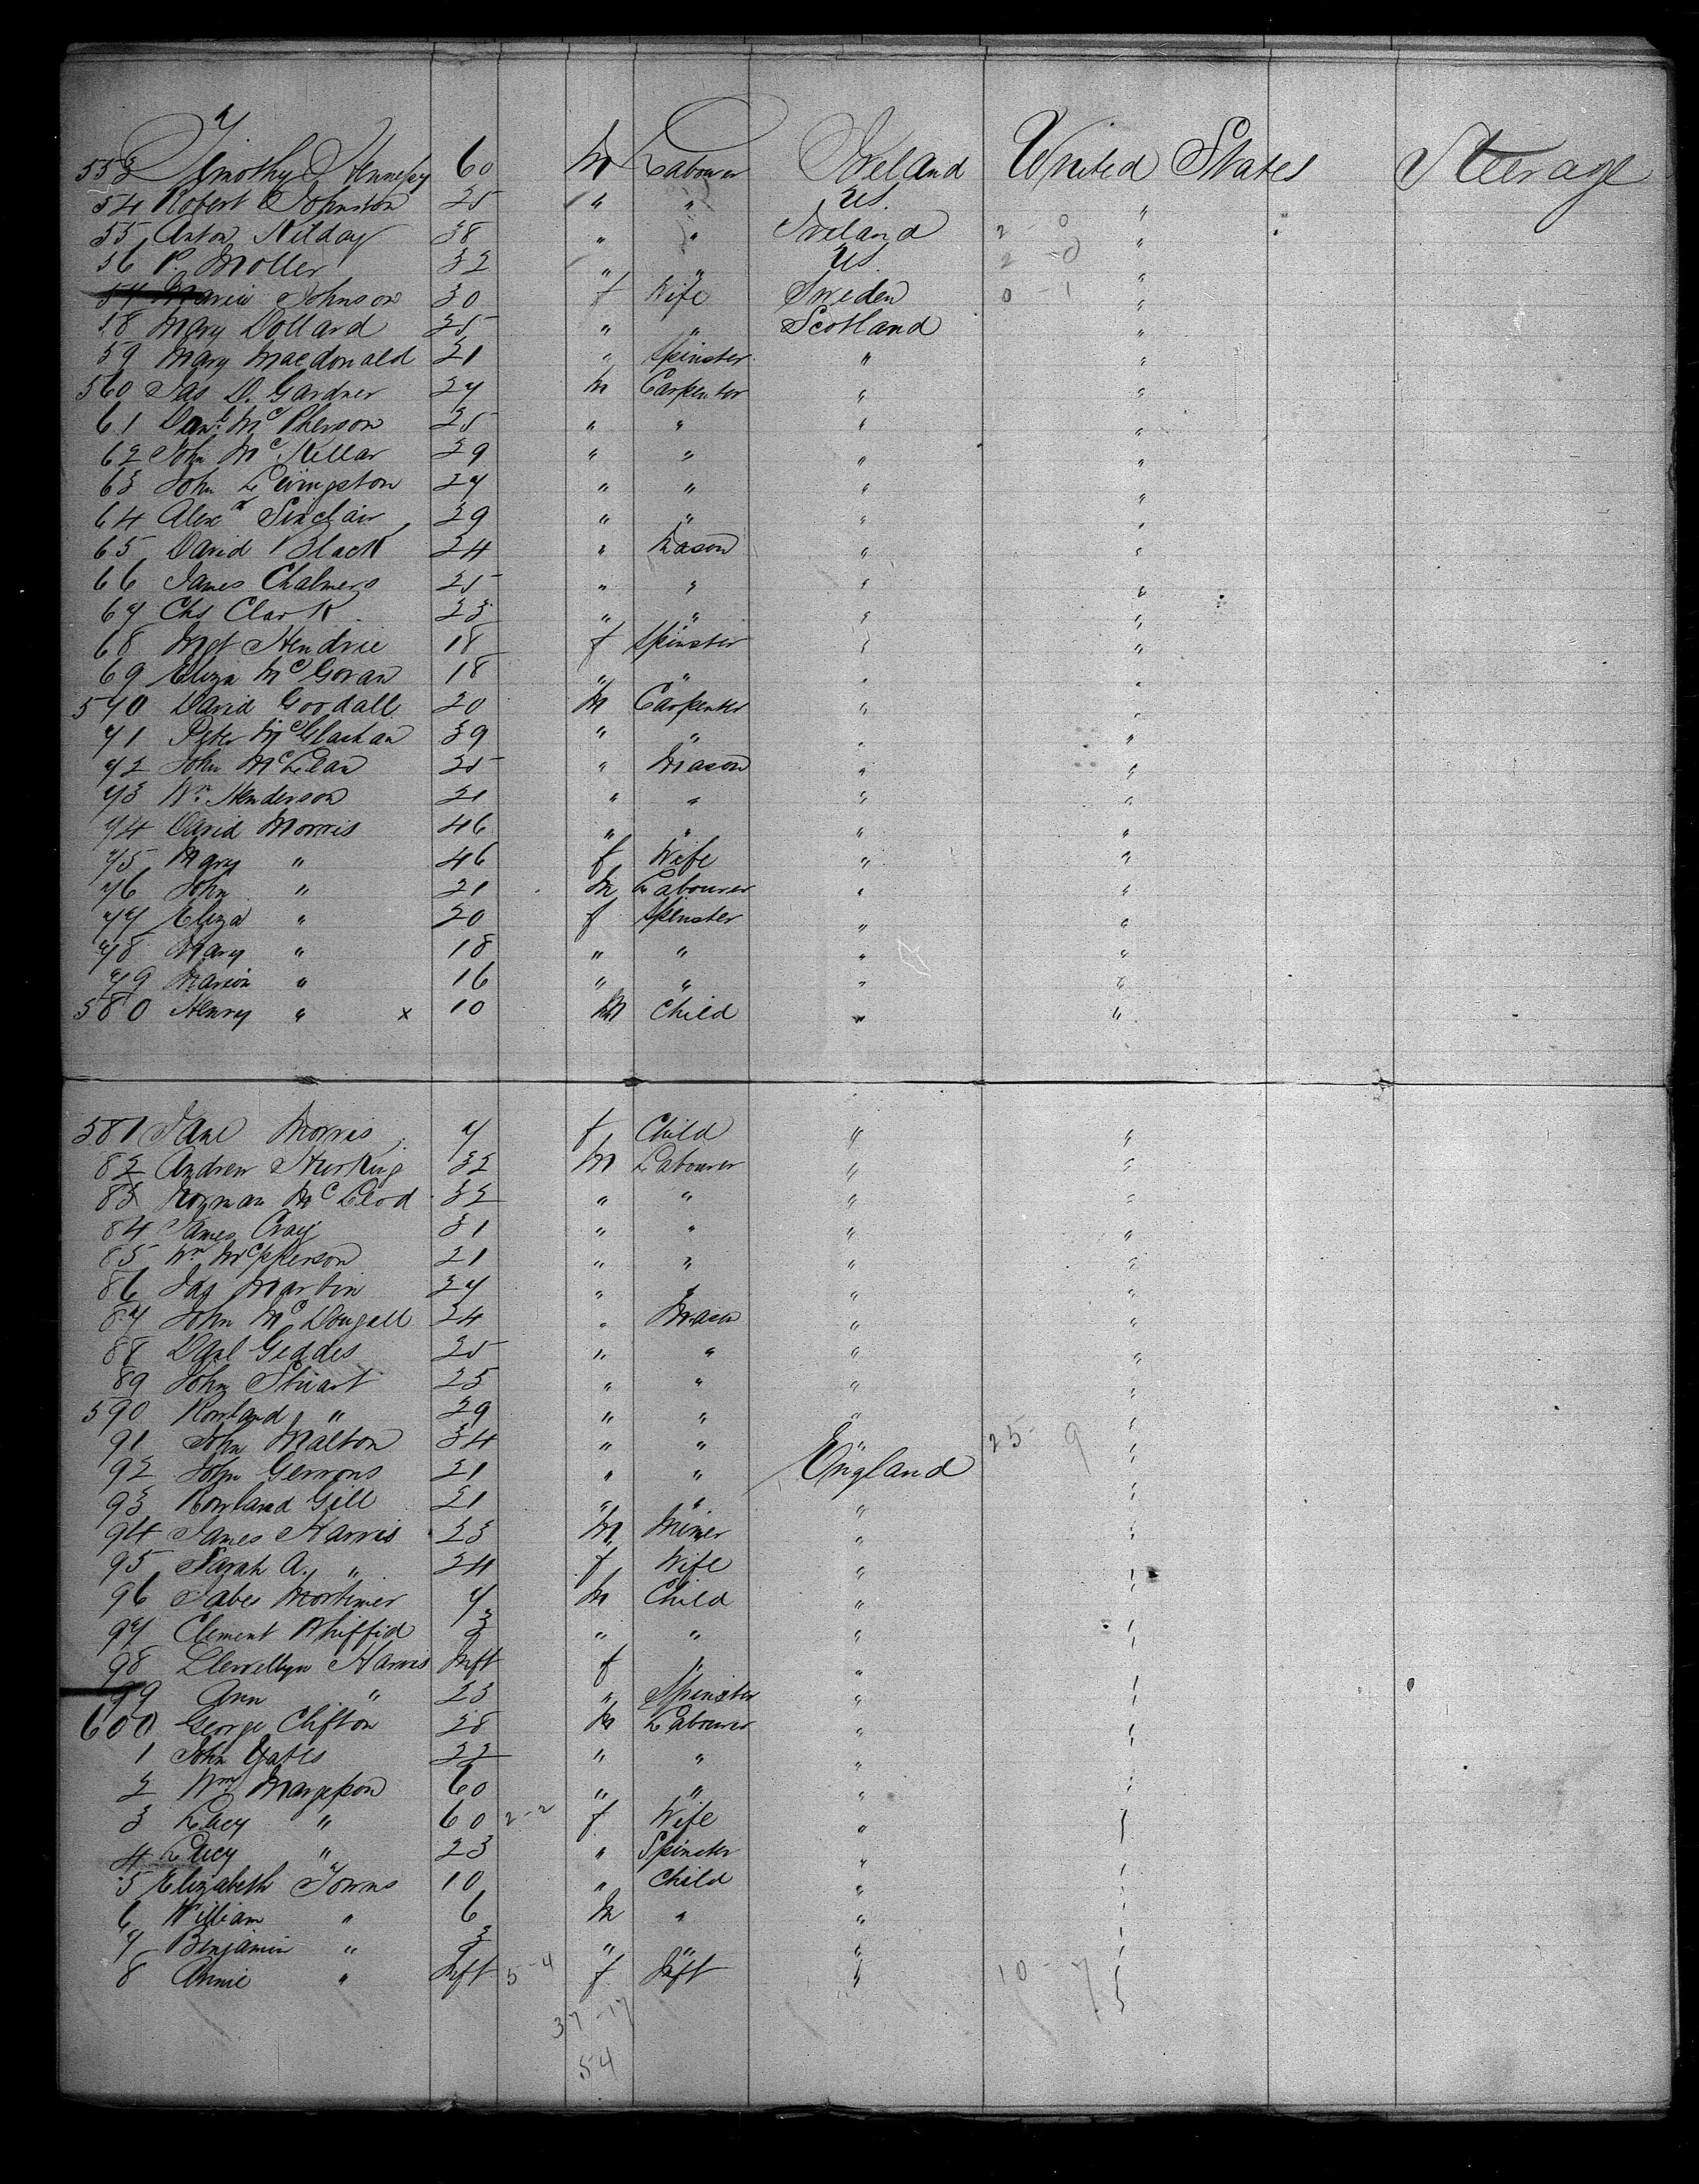 553 Timothy Hennesy 60 M Labourer Ireland United States Steerage
54 Robert Johnston 25 " " US. "
55 Anton Kilday 38 " " Ireland 2-0 "
56 P. Moller 32 " " US 2-0 "
57 Maria Johnson 30 f Wife Sweden 0-1 "
58 Mary Dollard 25 " " Scotland "
59 Mary Macdonald 21 " Spinster " "
560 Jas D. Gardner 27 M Carpenter " "
61 Danl. McPherson 25 " " " "
62 John McKellar 29 " " " "
63 John Livingston 27 " " " "
64 Alexr Sinclair 29 " " " "
65 David Black 24 " Mason " "
66 James Chalmers 25 " " " "
67 Chs Clark 23 " " " "
68 Mgt Hendrie 18 f Spinster " "
69 Eliza McGovan 18 " " " "
570 David Goodall 20 M Carpenter " "
71 Peter McGlachan 39 " " " "
72 John McLean 25 " Mason " "
73 Wm. Henderson 21 " " " "
74 David Morris 46 " " " "
75 Mary " 46 f Wife " "
76 John " 21 M Labourer " "
77 Eliza " 20 f Spinster " "
78 Mary " 18 " " " "
79 Marion " 16 " " " "
580 Henry " x 10 M Child " "
581 Jane Morris 7 f Child " "
82 Andrew 32 M Labourer " "
83 Norman McLeod 32 " " " "
84 James Craig 31 " " " "
85 Wm McPherson 21 " " " "
86 Jas Martin 27 " " " "
87 John McDougall 24 " Mason " "
88 Danl Geddes 25 " " " "
89 John Stuart 25 " " " "
590 Rowland " 29 " " " "
91 John Malton 34 " " " 25-9 "
92 John 21 " " England "
93 Rowland Gill 21 " " " "
94 James Harris 23 M Miner " "
95 Sarah A. " 24 f Wife " "
96 Mortimer 7 M Child " "
97 Clement 3 " " " "
98 Llewellyn Harris Inft f " " "
99 Ann " 23 " Spinster " "
600 George Clifton 28 M Labourer " "
1 John Yates 22 " " " "
2 Wm Margeson 60 " " " "
3 Lucy " 60 2-2 f Wife " "
4 Lucy " 23 " Spinster " "
5 Elizabeth Towns 10 " Child " "
6 William " 6 M " " "
7 Benjamin " 3 " " " "
8 Annie " Inft 5-4 f Inft " 10-7 "
37-17
54